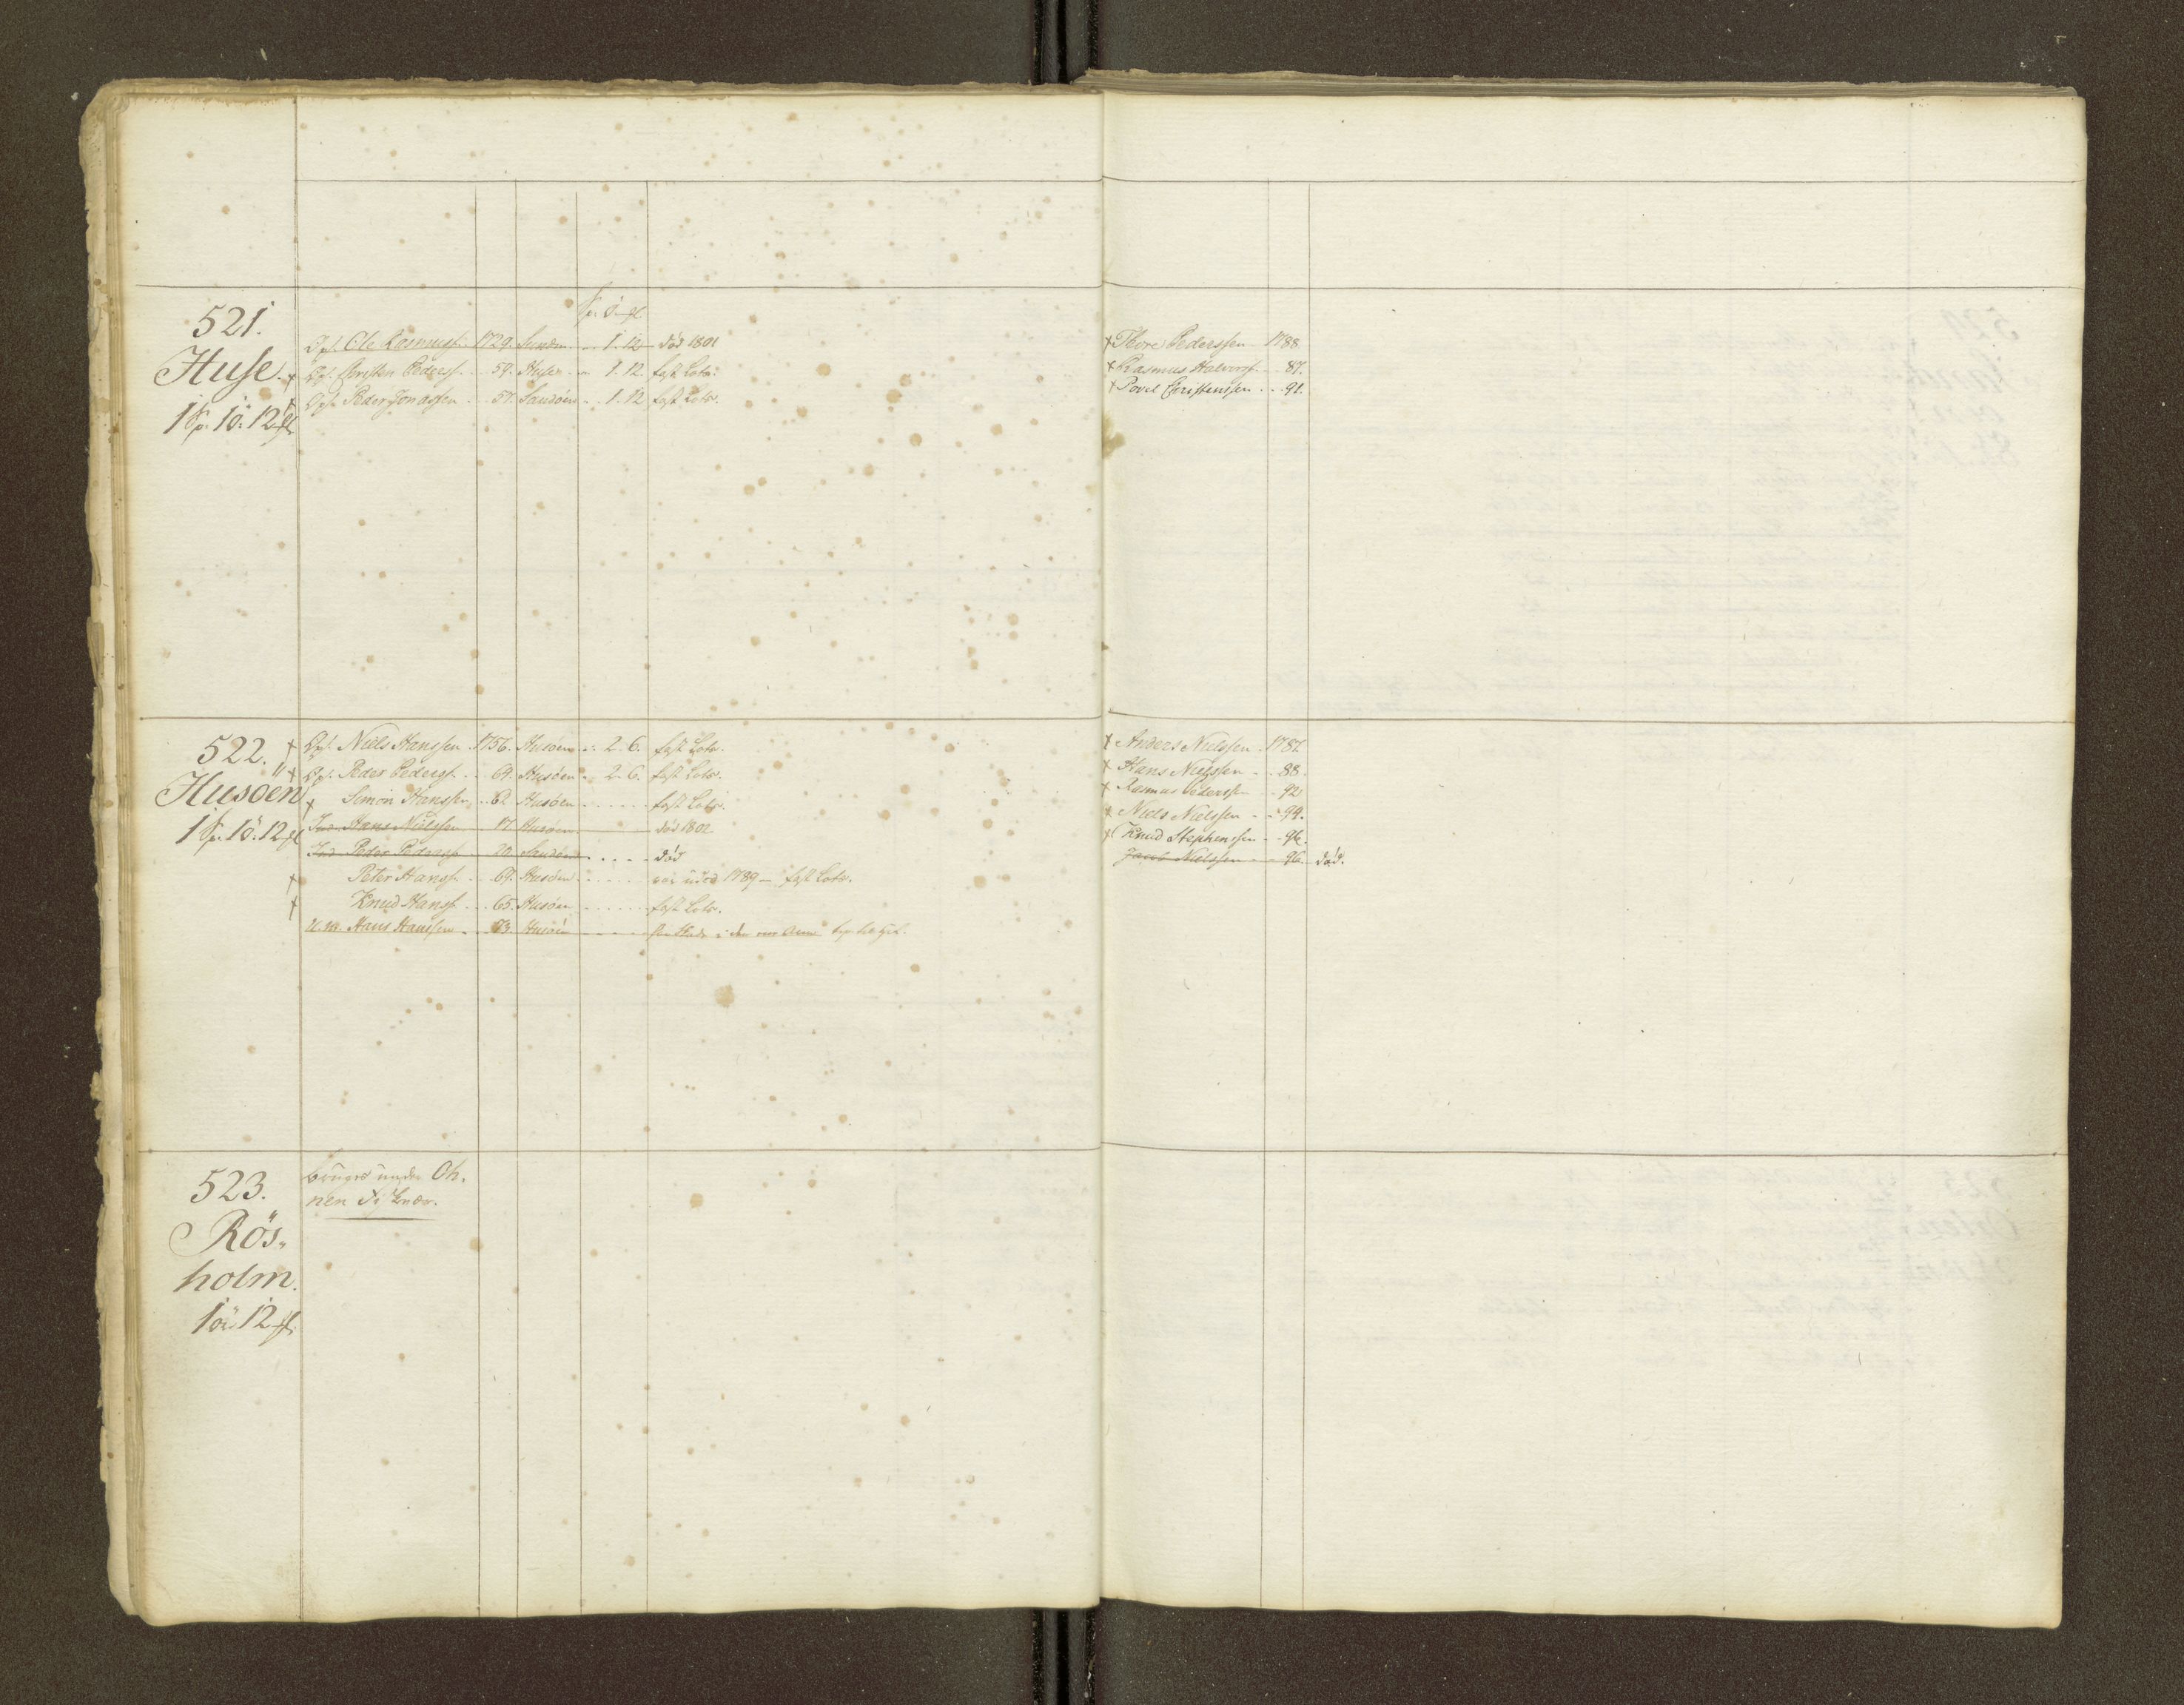 521.
Huse.
1 Sp. 1ö: 12 fl.
Sp. ö. fl.
Opf. Ole Rasmusf. 1729. Sandøen 1. 12 død 1801
Opf. Christen Pedersf. 59. Husøen 1. 12. fast Lots.
Opf. Peder Jonassen 57. Sandøen 1. 12 fast Lots.
x Thore Pederssen 1788
x Rasmus Halvorsf. 87.
x Povel Christenssen 91.
522.
Husöen
1 Sp. 1ö: 12 fl
x Opf. Niels Hanssen 1756. Husøen 2. 6. fast Lots.
x Opf. Peder Pedersf. 69. Husøen 2. 6. fast Lots.
x Simon Hanssen 62. Husöen fast Lots.
Ind. Hans Nielssen 17. Husøen død 1802
Ind. Peder Pedersf. 20. Sandøen død
x Peter Hansf. 69. Husøen 1789 – fast Lots.
x Knud Hansf. 65. Husøen fast Lots.
U.M. Hans Hanssen 73. Husöen
x Anders Nielssen 1787.
x Hans Nielssen 88.
x Rasmus Pederssen 92
x Niels Nielssen 94.
x Knud Stephenssen 96.
Jacob Nielssen 96. død.
523.
Rös-
holm.
1ö: 12 fl.
bruges under Oh,
nen